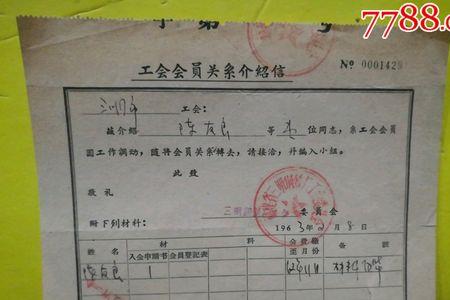 字第 号
7788.c
工会会员关系介紹信
No 0001429
三明市 工会：
茲介紹 陈友良 等 壹 位同志，系工会会員
因工作調动，随将会員关系轉去，請接洽，幷編入小組。
此 致
敬 礼
三明 委員会
1963年2月8日
附下列材料：
姓名 材 料 会費繳至月份 备 註
入会申請书 会員登記表
陈友良 1